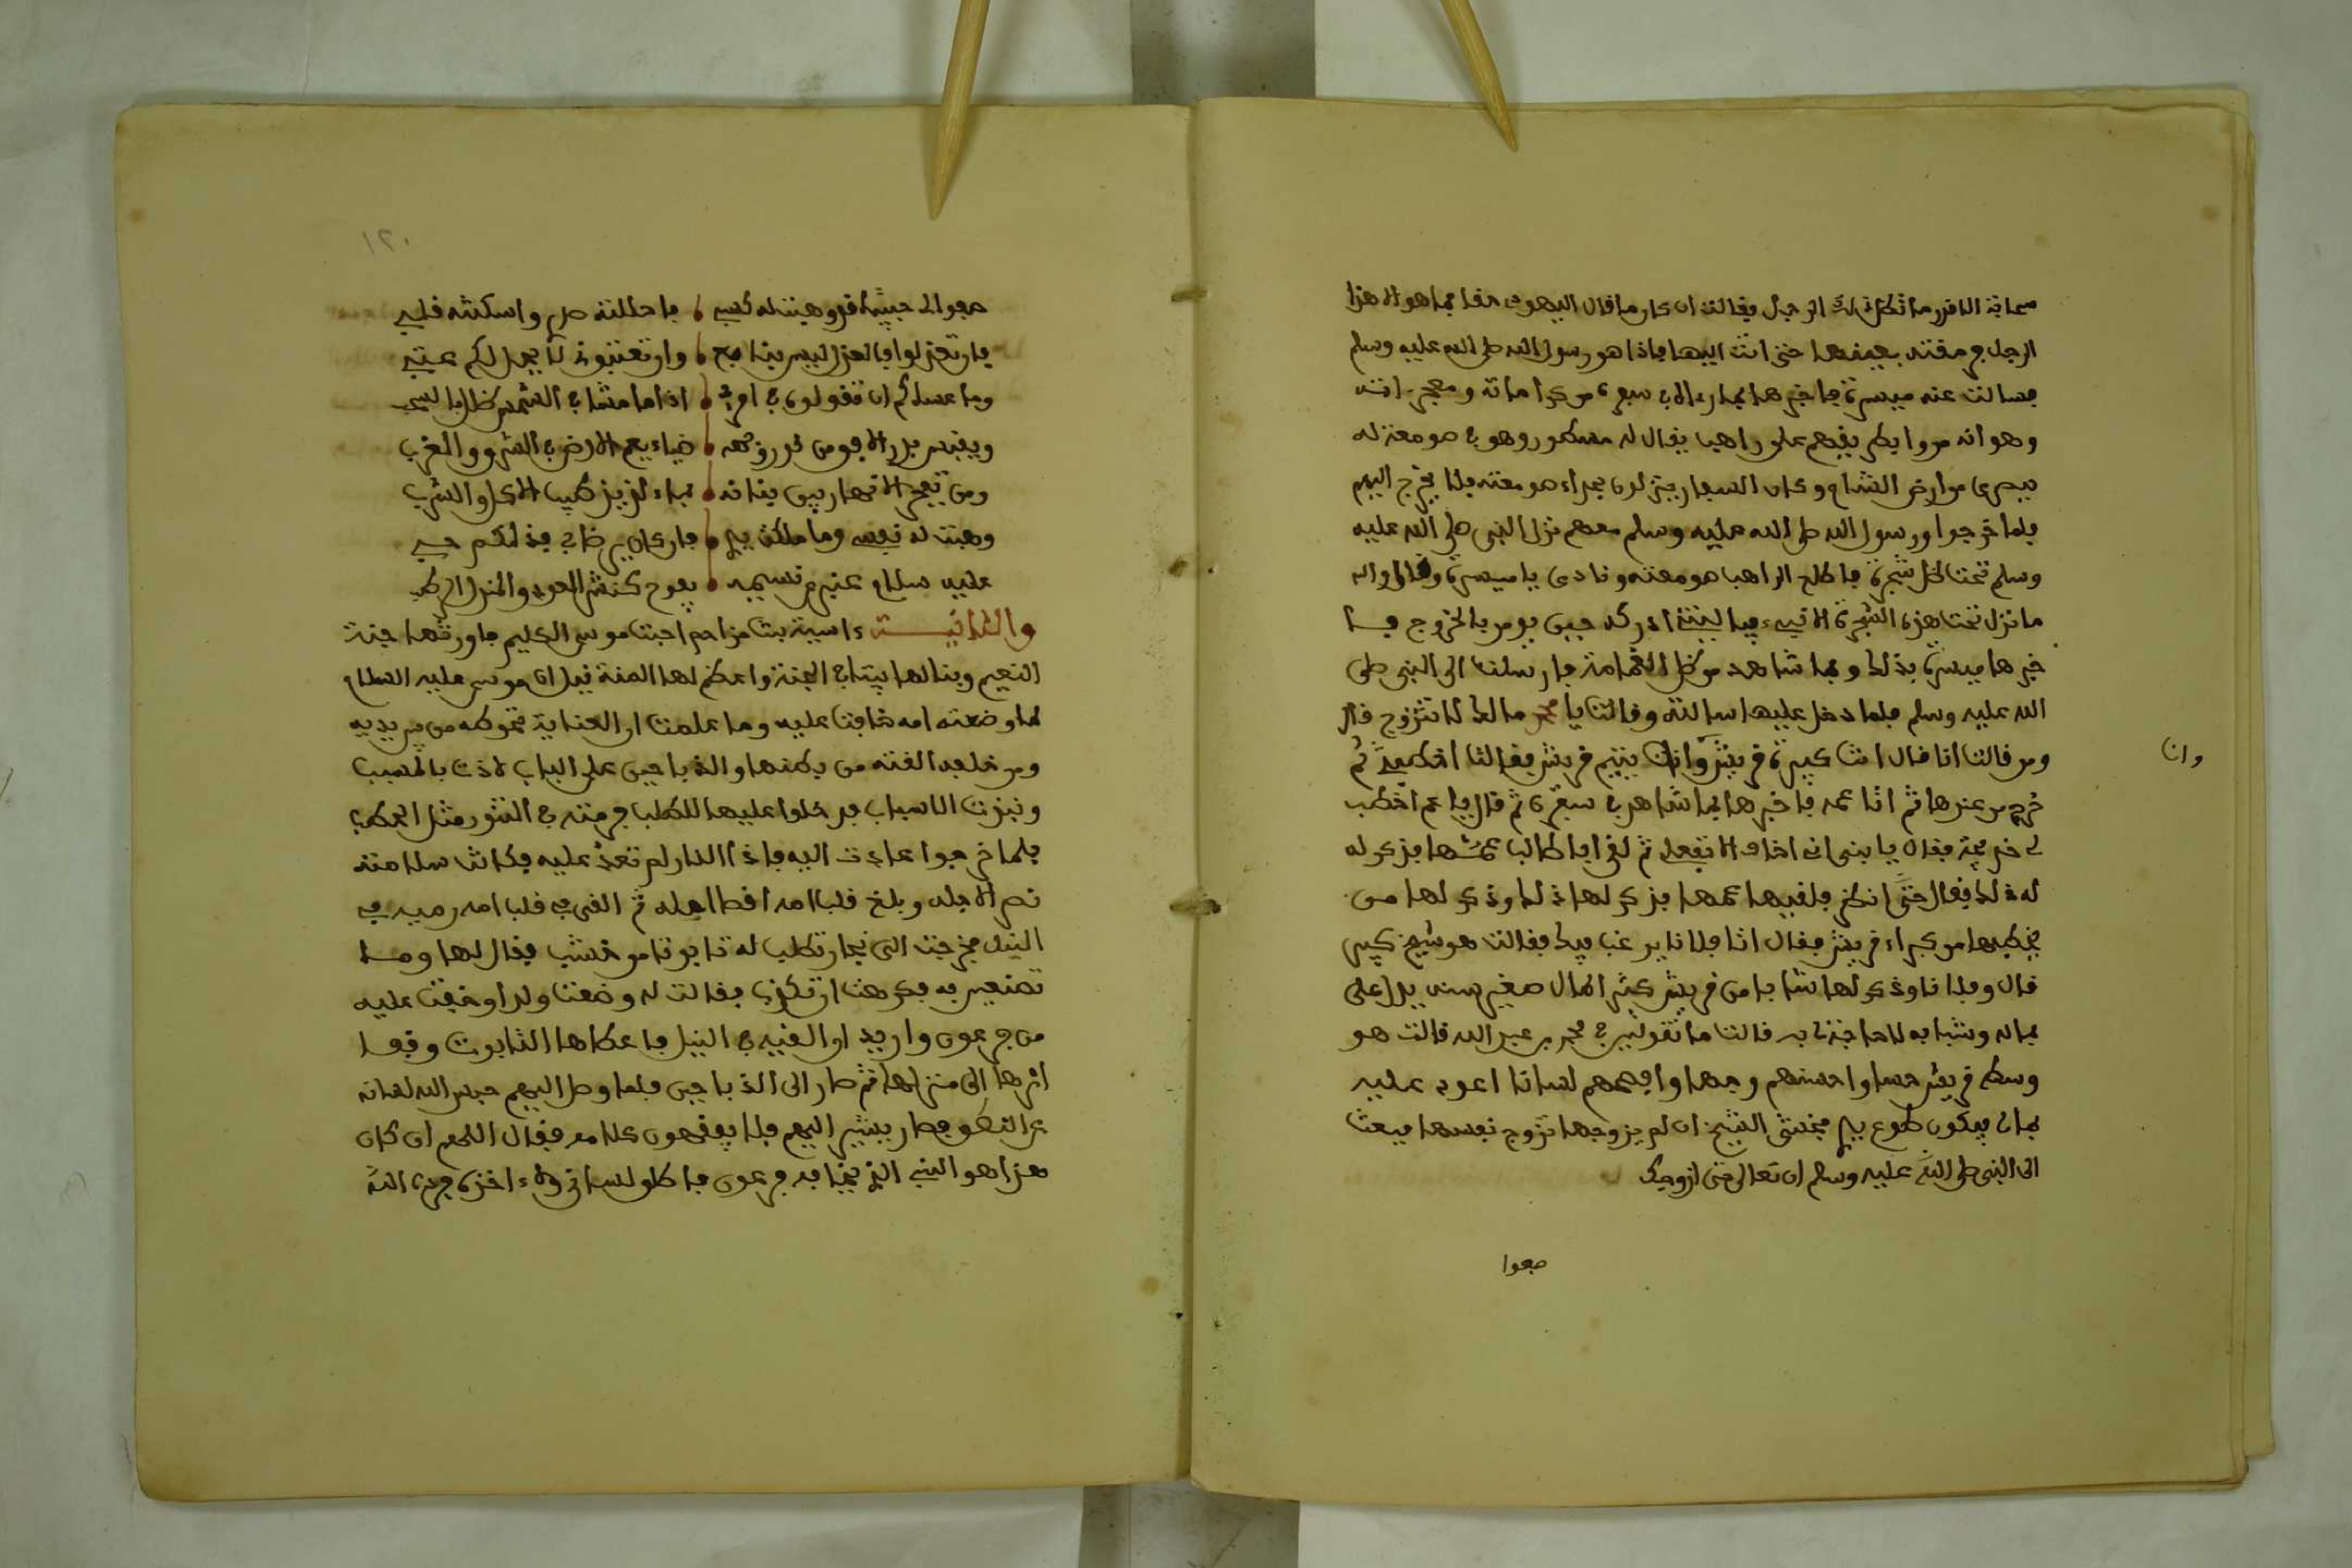 سحابة الا قرر ما تظل ذلك الرجل فقالت ان كان ما قال اليهودي حقا فما هو الا هذا
الرجل فرمقته بعينها حتى اتت اليها فاذا هو رسول الله صلى الله عليه وسلم
فسالت عنه ميسرة فاخبرها بما رءاه في سفره من كراماته ومعجزاته
وهو انه مروا بطريقهم على راهب يقال له نسطور وهو في صومعة له
ببصرى من ارض الشام وكان السفار ينزلون بحذاء صومعته فلا يخرج اليهم
فلما خرجوا ورسول الله صلى الله عليه وسلم معهم نزل النبي صلى الله عليه
وسلم تحت ظل شجرة فاطلع الراهب صومعته ونادى يا ميسرة وقال والله
ما نزل تحت هذه الشجرة الا نبيء فيا ليتني ادركه حين يومر بالخروج فسا
خبرها ميسرة بذلك وبما شاهد من ظل الغمامة فارسلت الى النبي صلى
الله عليه وسلم فلما دخل عليها سالته وقالت يا محمد مالك لا تتزوج قال
ومن قالت انا قال انت كبيرة قريش وانا يتيم قريش فقالت اخطبني ثم
وان
خرج من عندها ثم اتا عمه فاخبره بما شاهد في سفره ثم قال يا عم اخطب
لي خديجة فقال يا بني اني اخاف الا تفعل ثم لقي ابا طالب عمها فذكر له
له ذلك فقال حتى انظر فلقيها عمها فذكر لها ذلك وذكر لها من
يخطبها من كبراء قريش فقال اتا فلانا يرغب فيك فقالت هو شيخ كبير
قال وفلانا وذكر لها شابا من قريش كثير المال صغير سنه يدل على
بماله وشبابه لا حاجة لي به قالت ما تقولين في محمد بن عبد الله قالت هو
وسط قريش حسبا واحسنهم وجها وافصحهم لسانا اعود عليه
بمالي فيكون طوع يدي فخشي الشيخ ان لم يزوجها تزوج نفسها فبعث
الى النبي صلى الله عليه وسلم ان تعالى حتى ازوجك
صفوا
١٢٠
صفوا لي حبيبا قد وهبت له نفسي فاحللته صدري واسكنته قلبي
فان تعذلوا فالعذل ليس بنافع وان تعتبوني لا يصدكم عتبي
وما عساكم ان تقولوا في امرئ اذا ما مشا في الشمس ظل بالسحب
ويقتبس بدر الافق من نور وجهه ضياء يعم الارض في الشرق والغرب
ومن تفجر الانهار بين بنانه بماء لذيذ طيب الاكل والشرب
وهبت له نفسي وما ملكت يدي فان كان يرضاني فذالكم حسبي
عليه سلام عنبري نسيمه يفوح كنشر العود والمندل الرطب
والثانيـــة ءاسية بنت مزاحم احبت موسى الكليم فاورثها جنة
النعيم وبنا لها بيتا في الجنة واعظم لها المنة قيل ان موسى عليه السلام
لما وضعته امه خافت عليه وما علمت ان العناية تحوطه من بين يديه
ومن خلفه القته من بطنها والذباحين على الباب لاذت بالمسبب
ونبذت الاسباب فدخلوا عليها للطلب فرمته في التنور مثل الحطب
فلما خرجوا عادت اليه فاذا النار لم تعد عليه فكانت سلامته
نص الاجله وبلغ قلب امه اقصا امله ثم القي في قلب امه رميه في
النيل فخرجت الى نجار تطلب له تابوتا من خشب فقال لها ومـا
تصنعين به فكرهت ان تكذب فقالت له وضعت ولدا وخفت عليه
من فرعون واريد ان القيه في النيل فاعطاها التابوت وقفا
اثرها الى منزلها ثم صار الى الذباحين فلما وصل اليهم حبس الله لسانه
عن النطق فصار يشير اليهم فلا يفقهون كلامه فقال اللهم ان كان
هذا هو النبي الذي يخافه فرعون فاطلق لساني ولاء اخذه فرد الله